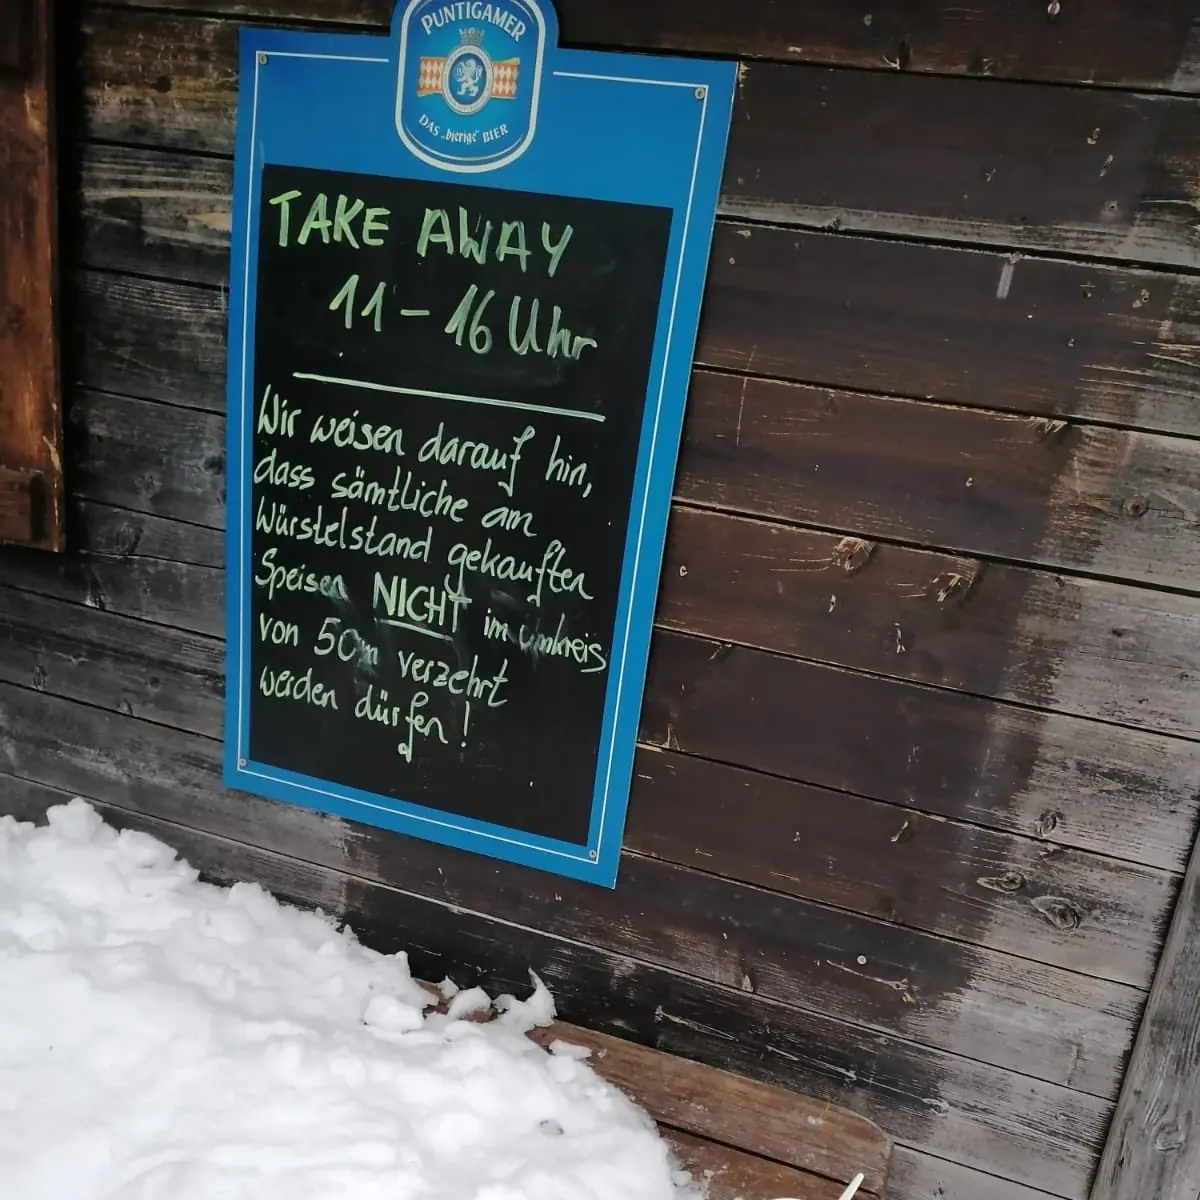 PUNTIGAMER
DAS „bierige" BIER
TAKE AWAY
11 - 16 Uhr
Wir weisen darauf hin,
dass sämtliche am
Würstelstand gekauften
Speisen NICHT im Umkreis
von 50m verzehrt
werden dürfen!